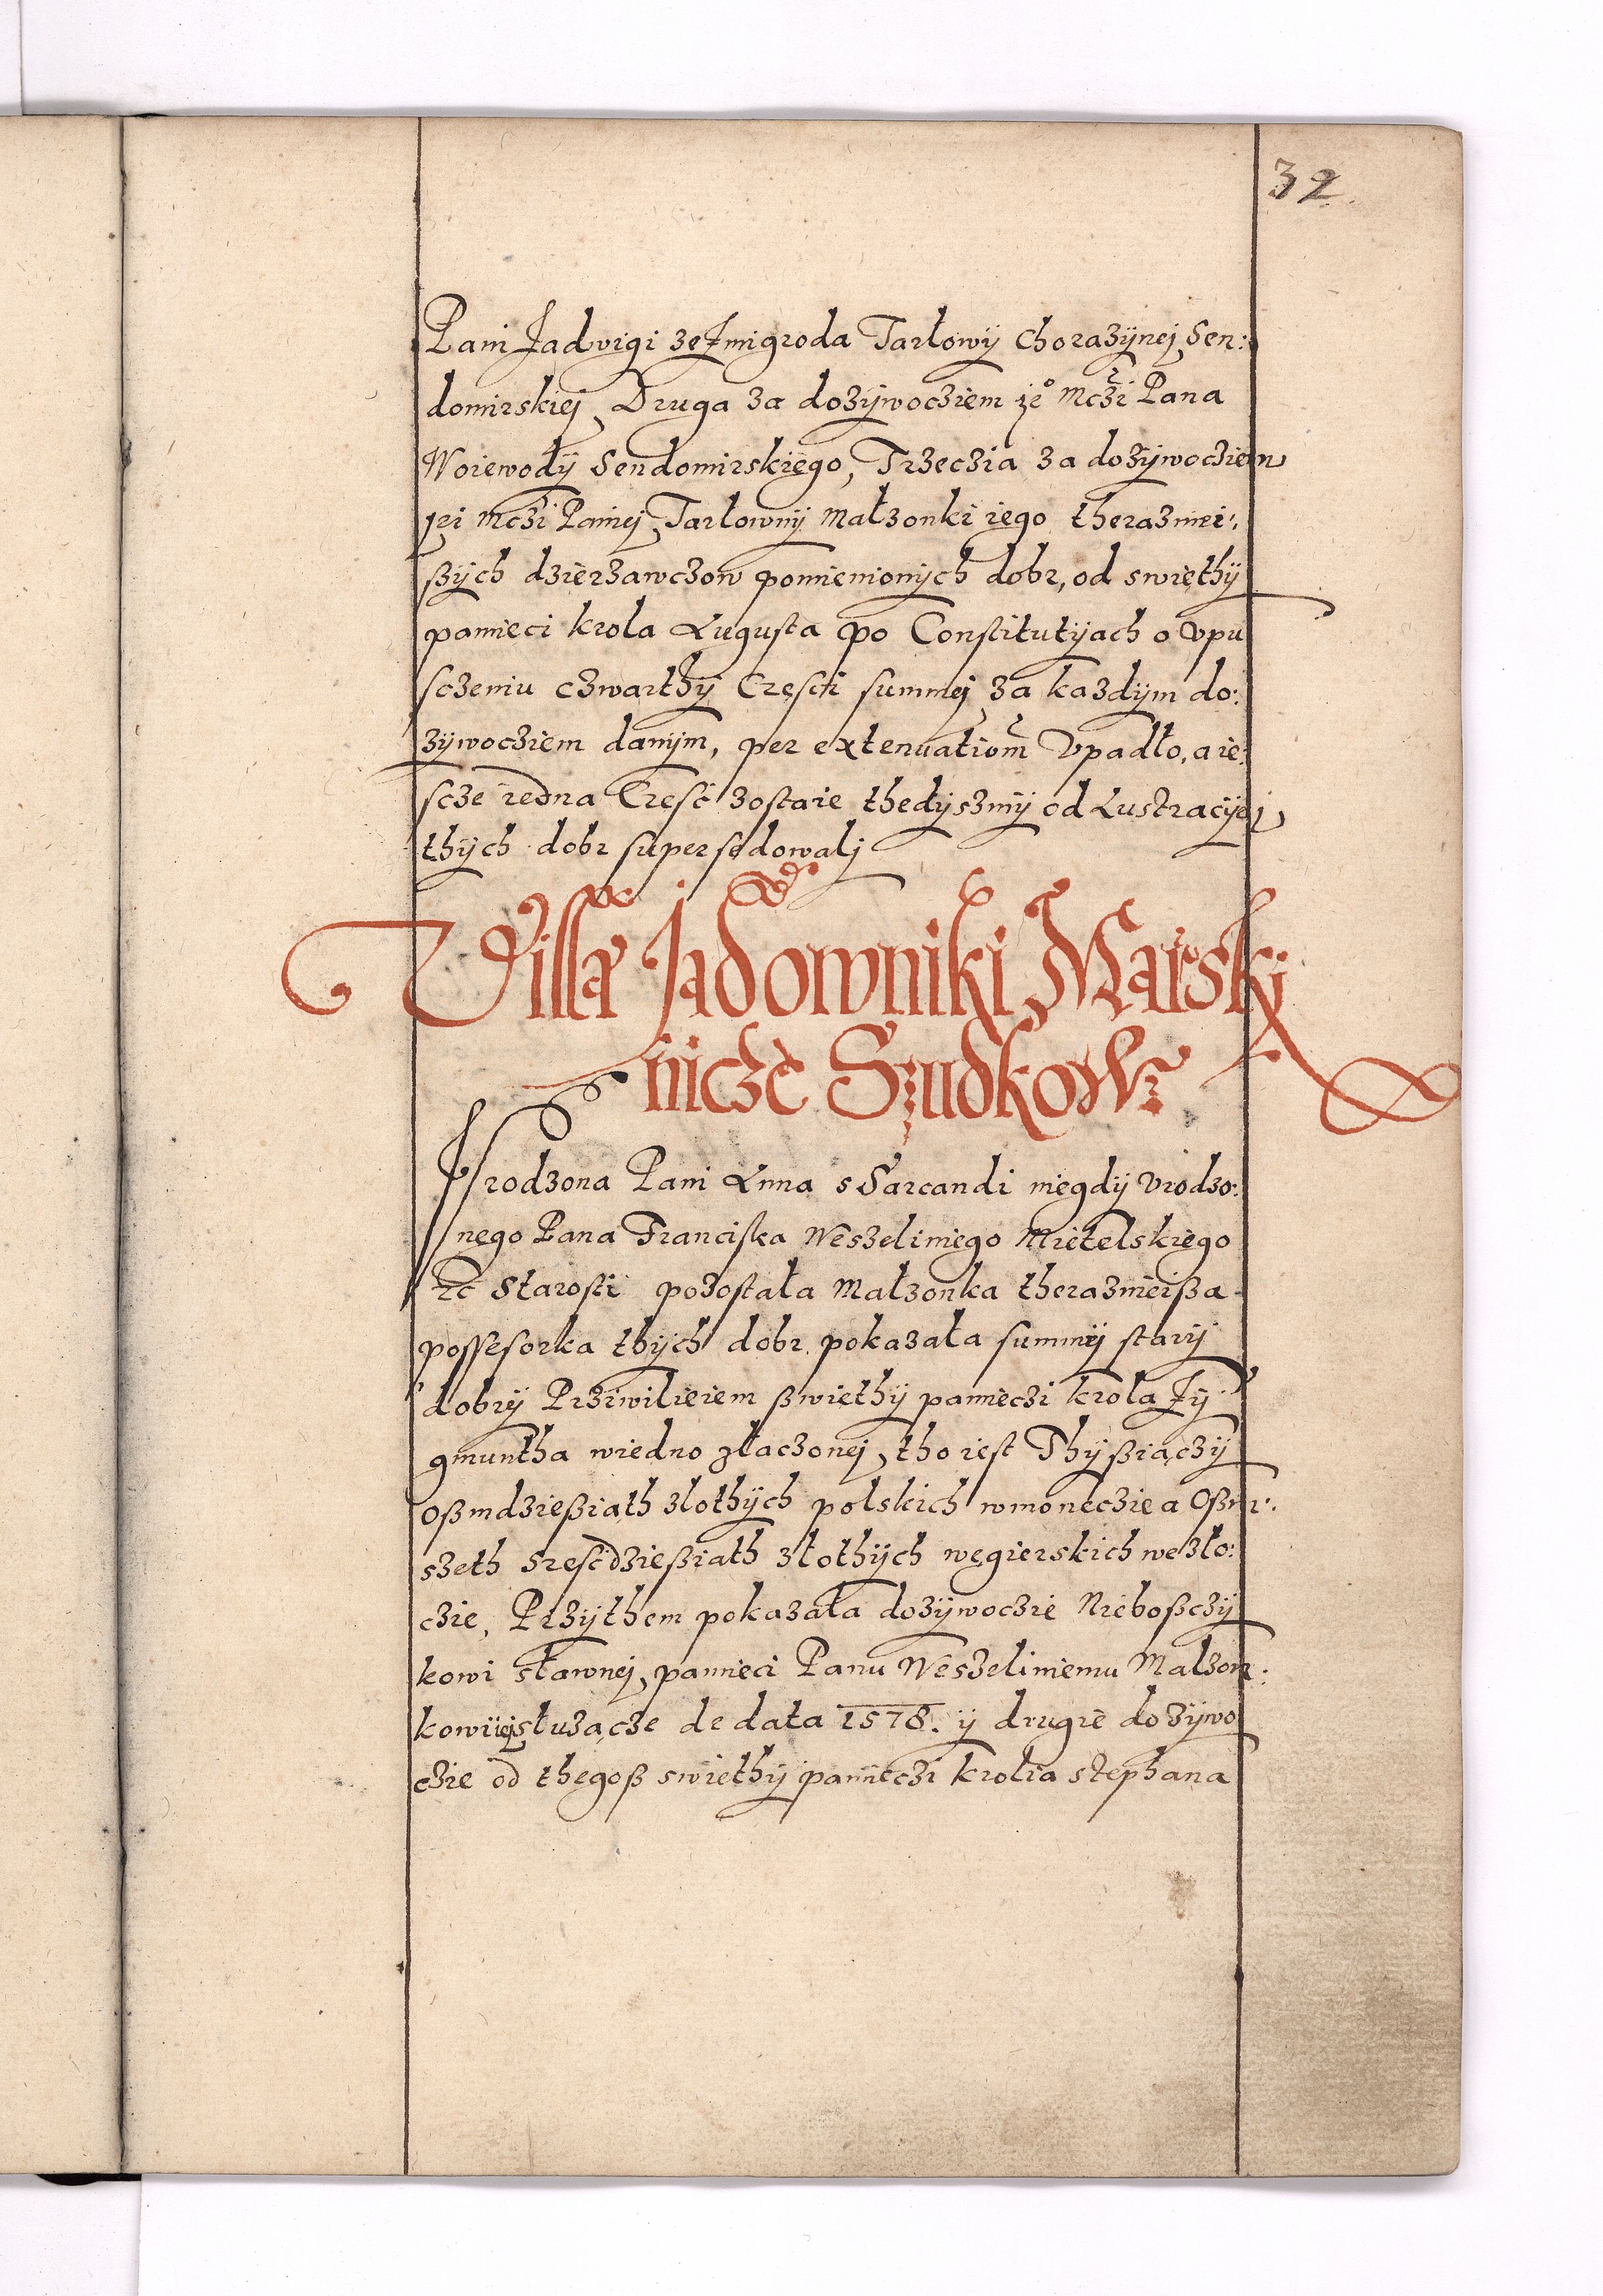 32
Pani Jadwigi ze Zmigroda Tarłowÿ Chorazÿnej Sen:
domirskiej, Druga za dozÿwoczièm ie° Mczi Pana
Woiewodÿ Sendomirskiègo, Trzeczia za dozÿwocziem
jei Mczi Paniej Tarłownÿ Małzonki iego therazniei:
ßÿch dzierzawczow pomienionÿch dobr, od swięthÿ
pamięci krola Augusta po Constitutÿach o Vpu
sczeniu czwarthÿ Częsci summej za kazdÿm do:
zÿwocziem danÿm, per extenuationem Vpadło, a ie:
scze iedna Częsć zostaie thedÿsmÿ od Lustracÿej
thÿch dobr supersedowalj
Villæ Jadowniki Marsky
nicze Szudkow
Vrodzona Pani Anna s Sarcandi niegdÿ Vrodzo:
nego Pana Franciska Weszeliniego Mietelskiego
etc Starosti pozostała Małzonka therazneißa
possesorka thÿch dobr. pokazała summÿ starÿ
dobrÿ Prziwilieiem ßwiethÿ pamieczi krola Zÿ
gmuntha wiedno złaczonej, tho iest Thÿßiączÿ
Oßmdzießiąth złothÿch polskich wmoneczie a Oßm:
szeth szesćdzießiath złothÿch węgierskich wezło:
czie, Przÿthem pokazała dozÿwoczie Nieboßczÿ
kowi sławnej, pamieci Panu Weszeliniemu Małzon:
kowi iej słuzącze de data 1578. ÿ drugiè dozÿwo
czie od thegoß swiethÿ pamieczi krolia Stephana